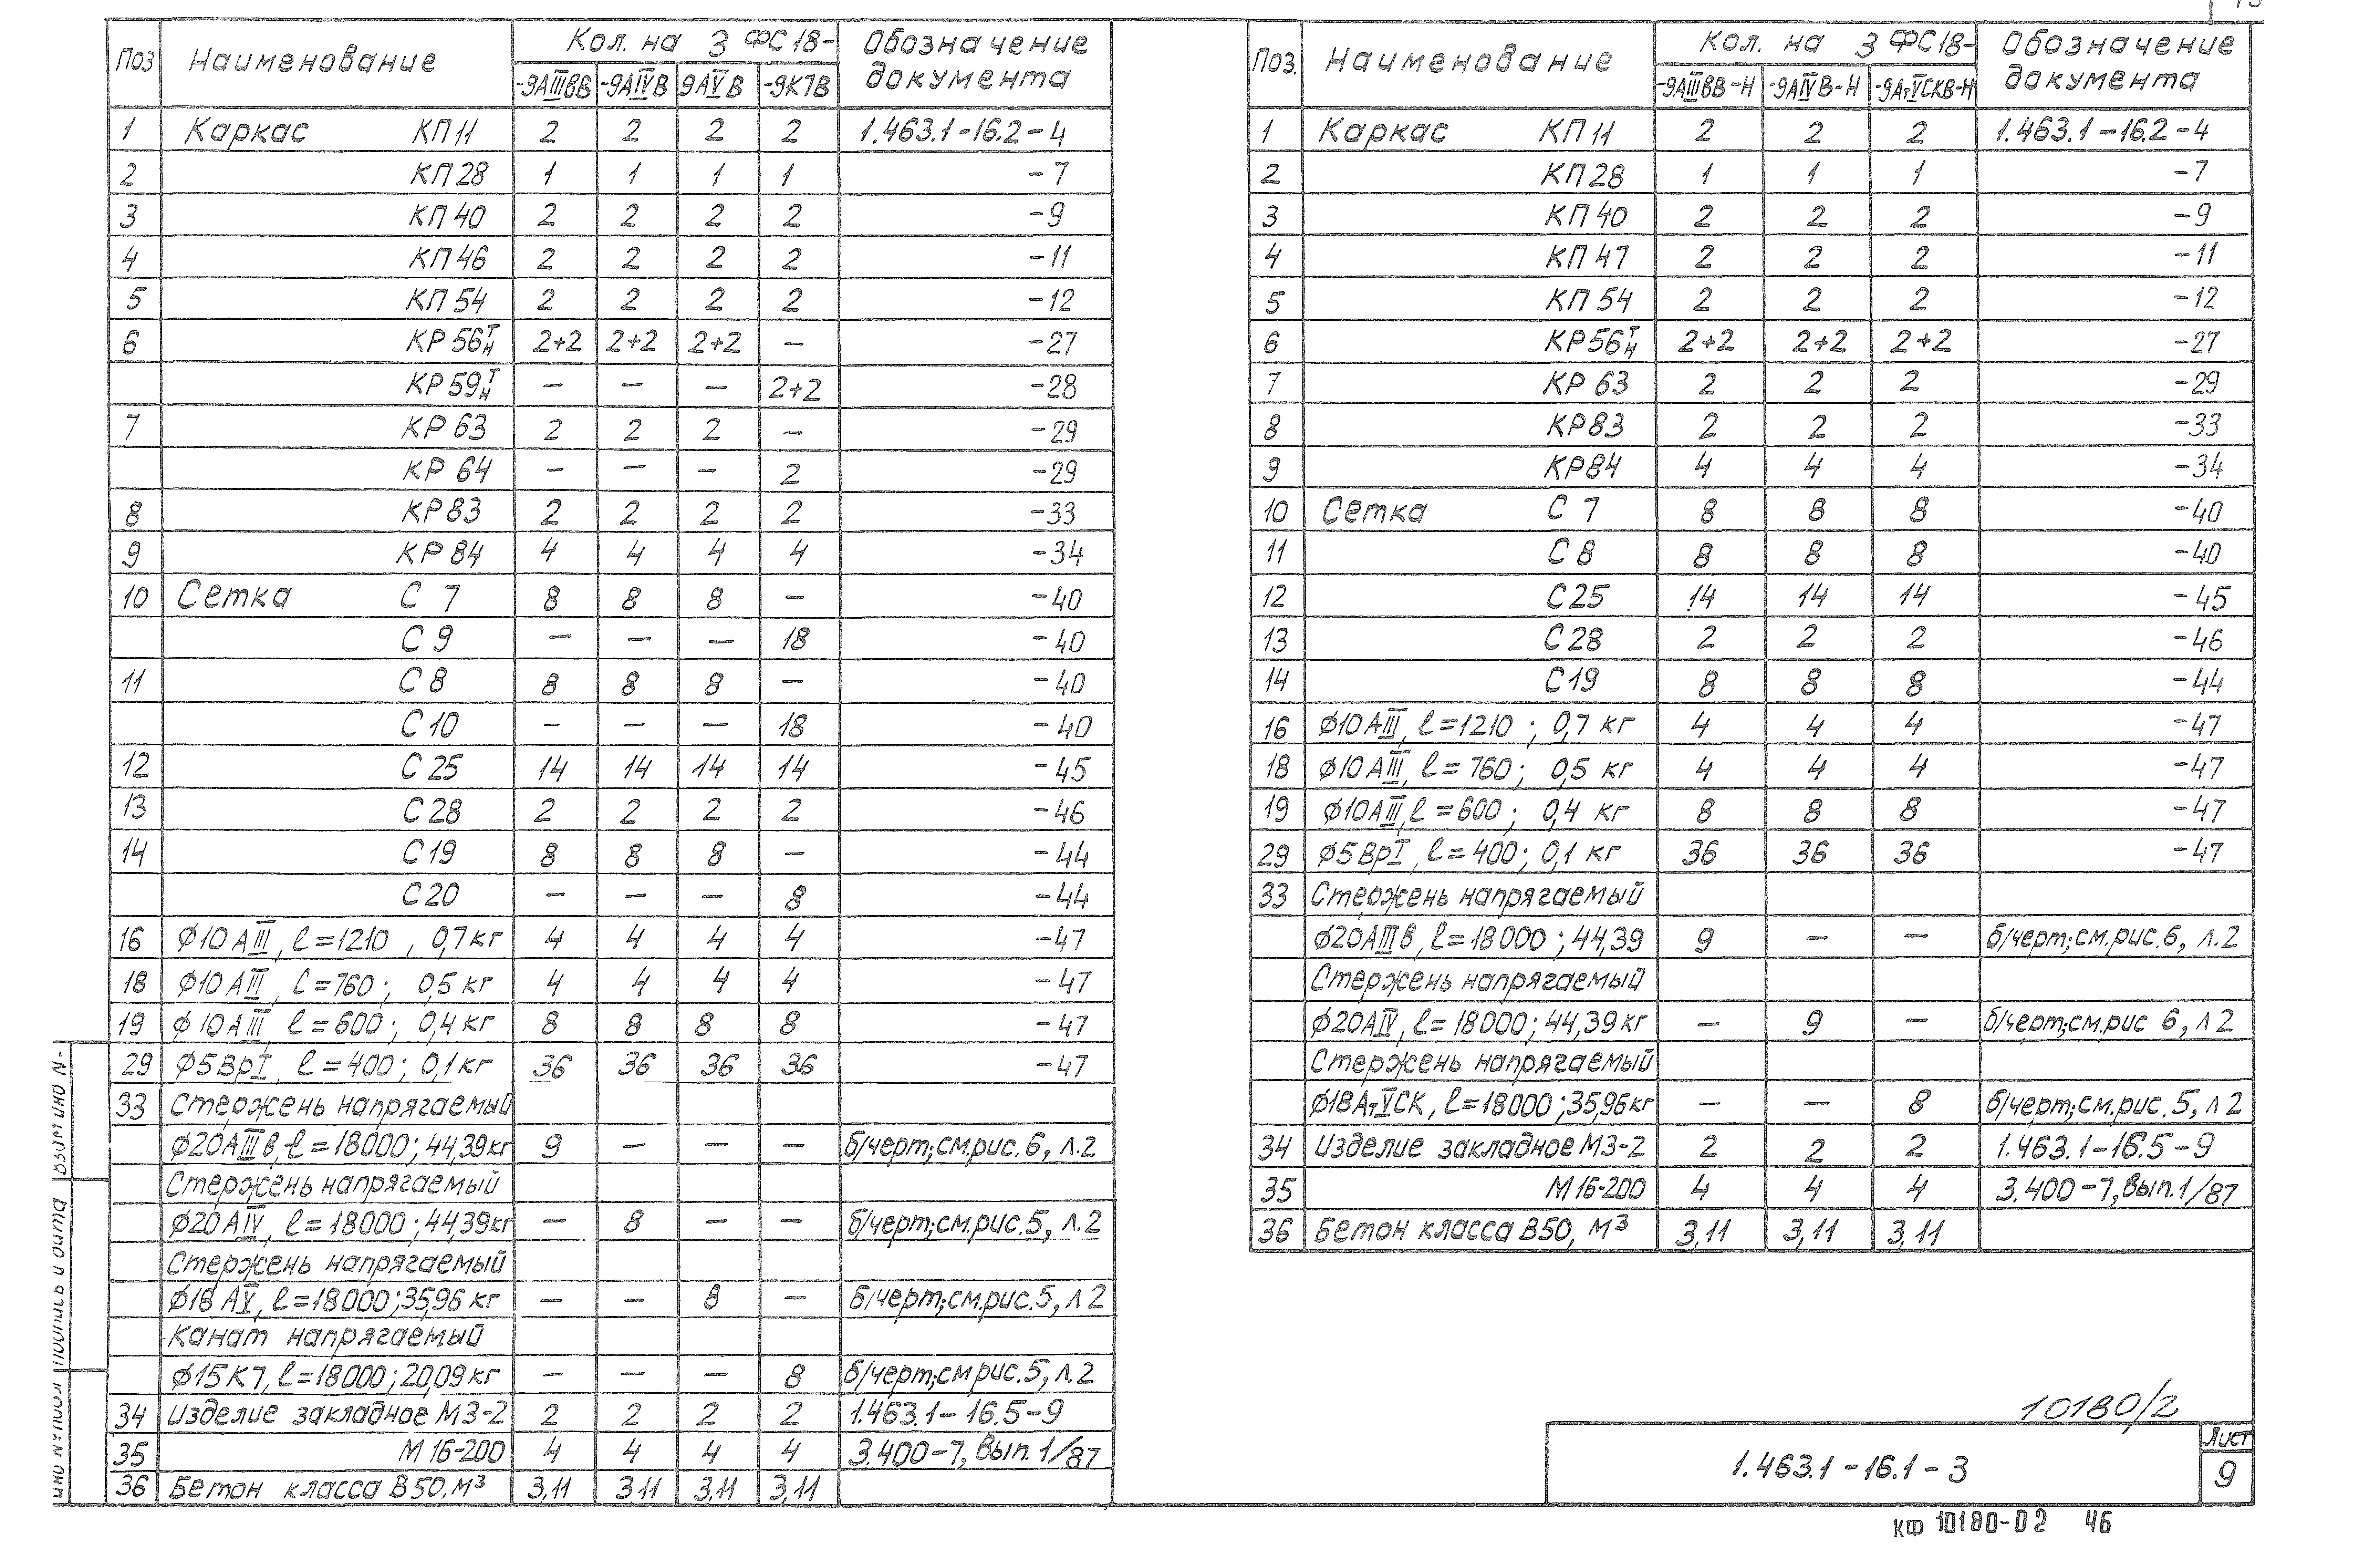 Поз Наименование Кол. на 3 ФС18- Обозначение документа
-9АIIIВВ -9АIVВ 9АVВ -9К7В
1 Каркас КП11 2 2 2 2 1.463.1-16.2-4
2 КП28 1 1 1 1 -7
3 КП40 2 2 2 2 -9
4 КП46 2 2 2 2 -11
5 КП54 2 2 2 2 -12
6 КР56Т/Н 2+2 2+2 2+2 — -27
КР59Т/Н — — — 2+2 -28
7 КР63 2 2 2 — -29
КР64 — — — 2 -29
8 КР83 2 2 2 2 -33
9 КР84 4 4 4 4 -34
10 Сетка С 7 8 8 8 — -40
С 9 — — — 18 -40
11 С 8 8 8 8 — -40
С 10 — — — 18 -40
12 С 25 14 14 14 14 -45
13 С 28 2 2 2 2 -46
14 С 19 8 8 8 — -44
С 20 — — — 8 -44
16 ф10АIII, ℓ=1210 , 0,7кг 4 4 4 4 -47
18 ф10АIII, ℓ=760; 0,5 кг 4 4 4 4 -47
19 ф10АIII ℓ=600; 0,4кг 8 8 8 8 -47
29 ф5ВрI, ℓ=400; 0,1кг 36 36 36 36 -47
33 Стержень напрягаемый
ф20АIIIв, ℓ=18000; 44,39кг 9 — — — б/черт; см.рис.6, л.2
Стержень напрягаемый
ф20АIV, ℓ=18000; 44,39кг — 8 — — б/черт; см.рис.5, л.2
Стержень напрягаемый
ф18АV, ℓ=18000; 35,96 кг — — 8 — б/черт; см.рис.5, л 2
Канат напрягаемый
ф15К7, ℓ=18000; 20,09кг — — — 8 б/черт; см рис.5, л.2
34 Изделие закладное МЗ-2 2 2 2 2 1.463.1-16.5-9
35 М16-200 4 4 4 4 3.400-7, Вып.1/87
36 Бетон класса В50, м³ 3,11 3,11 3,11 3,11
Поз. Наименование Кол. на 3 ФС18- Обозначение документа
-9АIIIВВ-Н -9АIVВ-Н -9АтVСКВ-Н
1 Каркас КП11 2 2 2 1.463.1-16.2-4
2 КП28 1 1 1 -7
3 КП40 2 2 2 -9
4 КП47 2 2 2 -11
5 КП54 2 2 2 -12
6 КР56Т/Н 2+2 2+2 2+2 -27
7 КР63 2 2 2 -29
8 КР83 2 2 2 -33
9 КР84 4 4 4 -34
10 Сетка С 7 8 8 8 -40
11 С 8 8 8 8 -40
12 С25 14 14 14 -45
13 С28 2 2 2 -46
14 С19 8 8 8 -44
16 ф10АIII, ℓ=1210 ; 0,7 кг 4 4 4 -47
18 ф10АIII, ℓ=760; 0,5 кг 4 4 4 -47
19 ф10АIII, ℓ=600; 0,4 кг 8 8 8 -47
29 ф5ВрI, ℓ=400; 0,1 кг 36 36 36 -47
33 Стержень напрягаемый
ф20АIIIв, ℓ=18000 ; 44,39 9 — — б/черт; см.рис.6, л.2
Стержень напрягаемый
ф20АIV, ℓ=18000; 44,39кг — 9 — б/черт; см.рис 6, л 2
Стержень напрягаемый
ф18АтVСК, ℓ=18000; 35,96кг — — 8 б/черт; см.рис.5, л 2
34 Изделие закладное МЗ-2 2 2 2 1.463.1-16.5-9
35 М16-200 4 4 4 3.400-7, Вып.1/87
36 Бетон класса В50, м³ 3,11 3,11 3,11
10180/2
1.463.1-16.1-3
Лист
9
КФ 10180-02 46